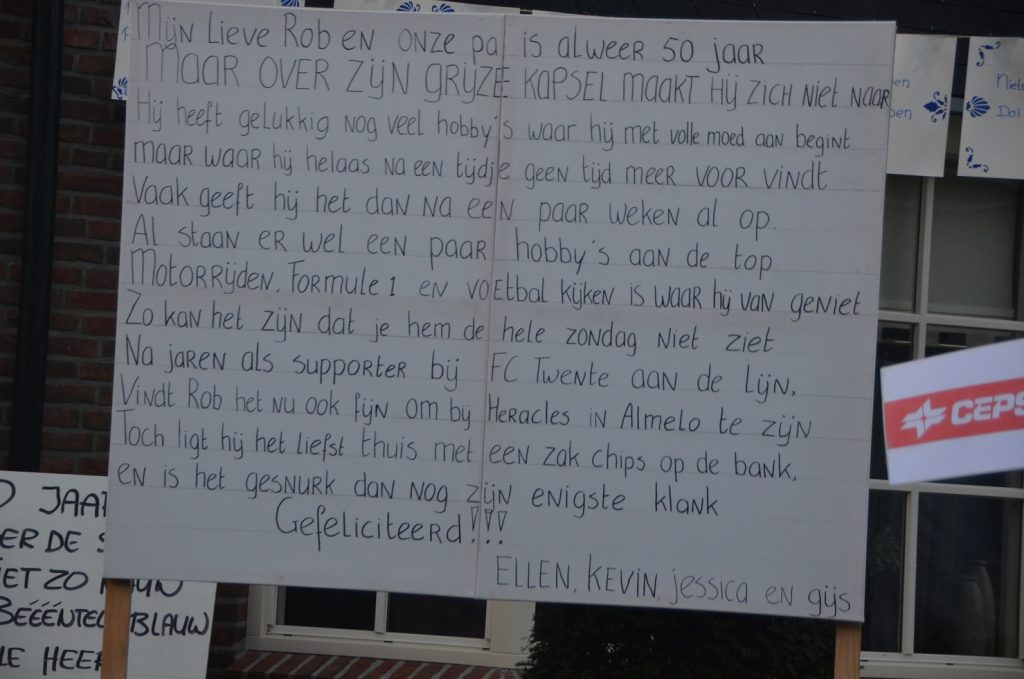 Mijn Lieve Rob en onze pa is alweer 50 jaar
Maar over zijn grijze kapsel maakt hij zich niet naar
Hij heeft gelukkig nog veel hobby's waar hij met volle moed aan begint
maar waar hij helaas na een tijdje geen tijd meer voor vindt
Vaak geeft hij het dan na een paar weken al op.
Al staan er wel een paar hobby's aan de top
Motorrijden, Formule 1 en voetbal kijken is waar hij van geniet
Zo kan het zijn dat je hem de hele zondag niet ziet
Na jaren als supporter bij FC Twente aan de lijn,
Vindt Rob het nu ook fijn om bij Heracles in Almelo te zijn
Toch ligt hij het liefst thuis met een zak chips op de bank,
en is het gesnurk dan nog zijn enigste klank
Gefeliciteerd!!!
ELLEN, KEVIN, jessica en gijs
CEPS
JAAR
ER DE S
ET ZO
BLAUW
LE HEER
Niets
Dat